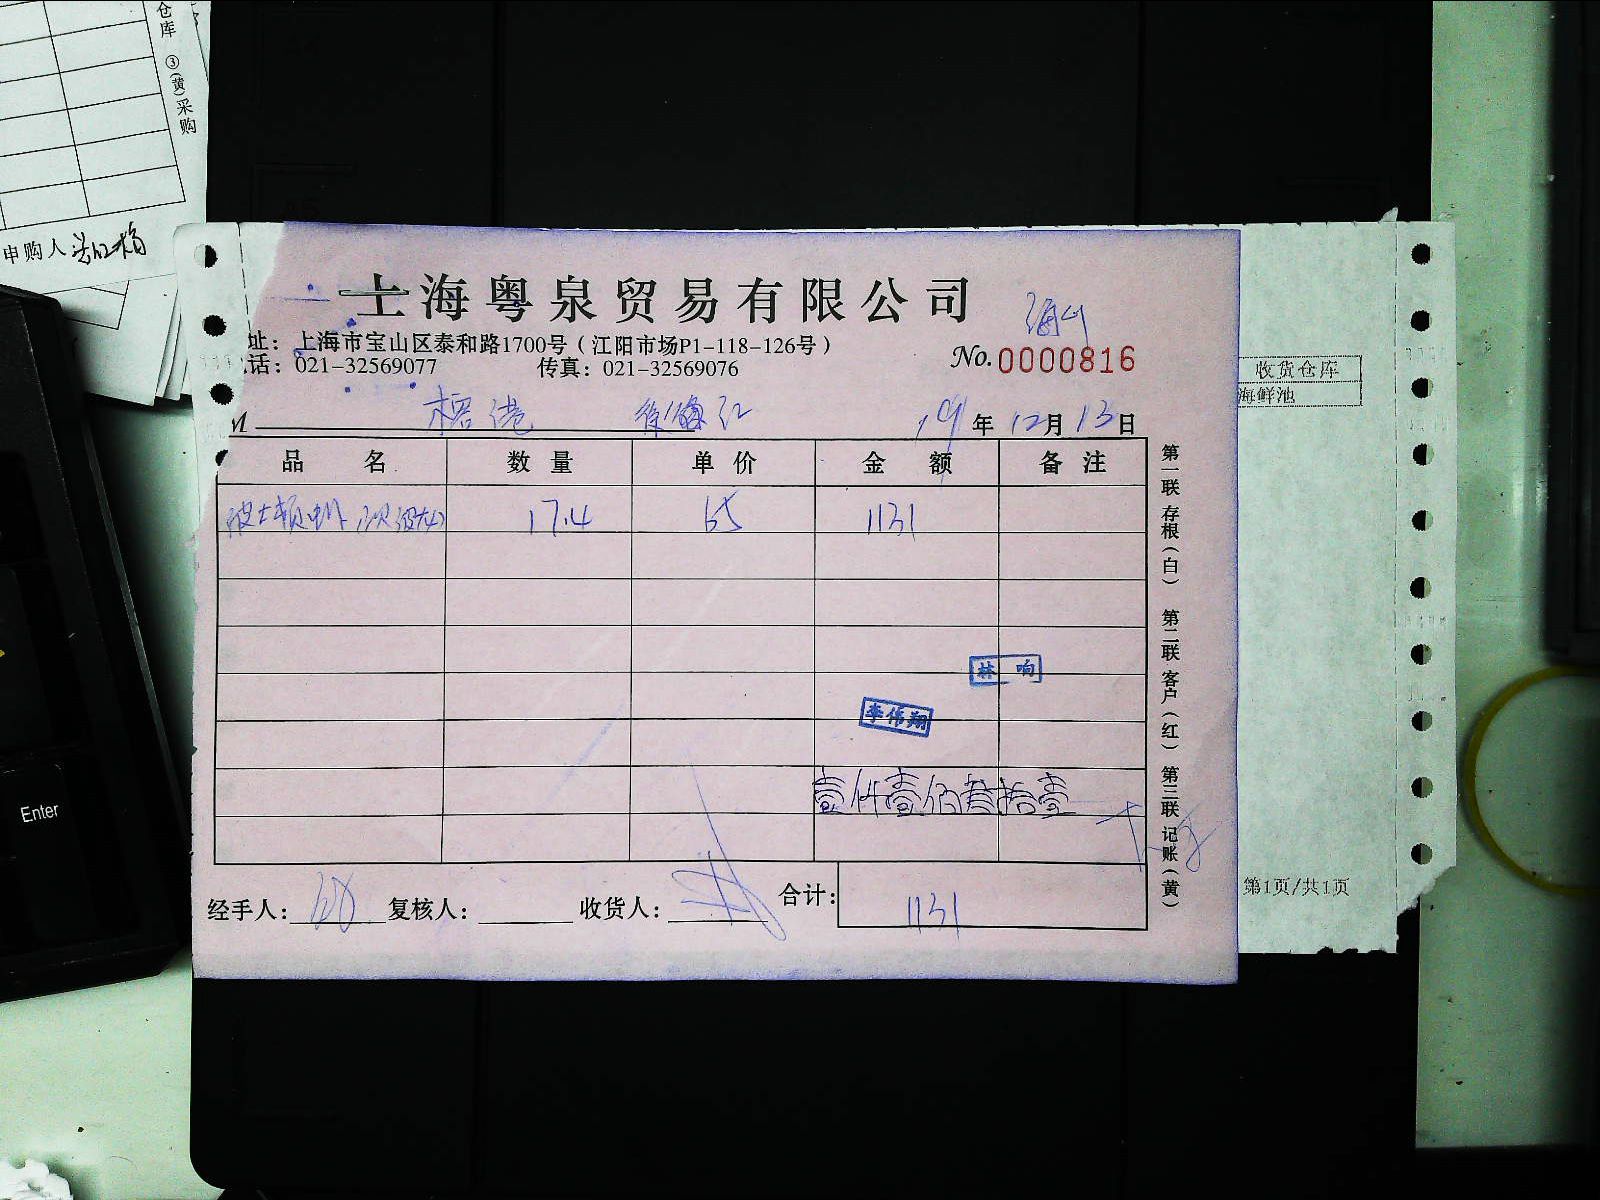 仓库 ③(黄)采购
申购人
上海粤泉贸易有限公司
址：上海市宝山区泰和路1700号（江阳市场P1-118-126号）
话：021-32569077 传真：021-32569076
No.0000816
收货仓库
海鲜池
M 榕港 徐海红 19年12月13日
品名 数量 单价 金额 备注
波士顿 17.4 65 1131
林响
李伟翔
壹仟壹佰叁拾壹
经手人： 复核人： 收货人： 合计： 1131
第一联 存根（白） 第二联 客户（红） 第三联 记账（黄）
第1页/共1页
Enter